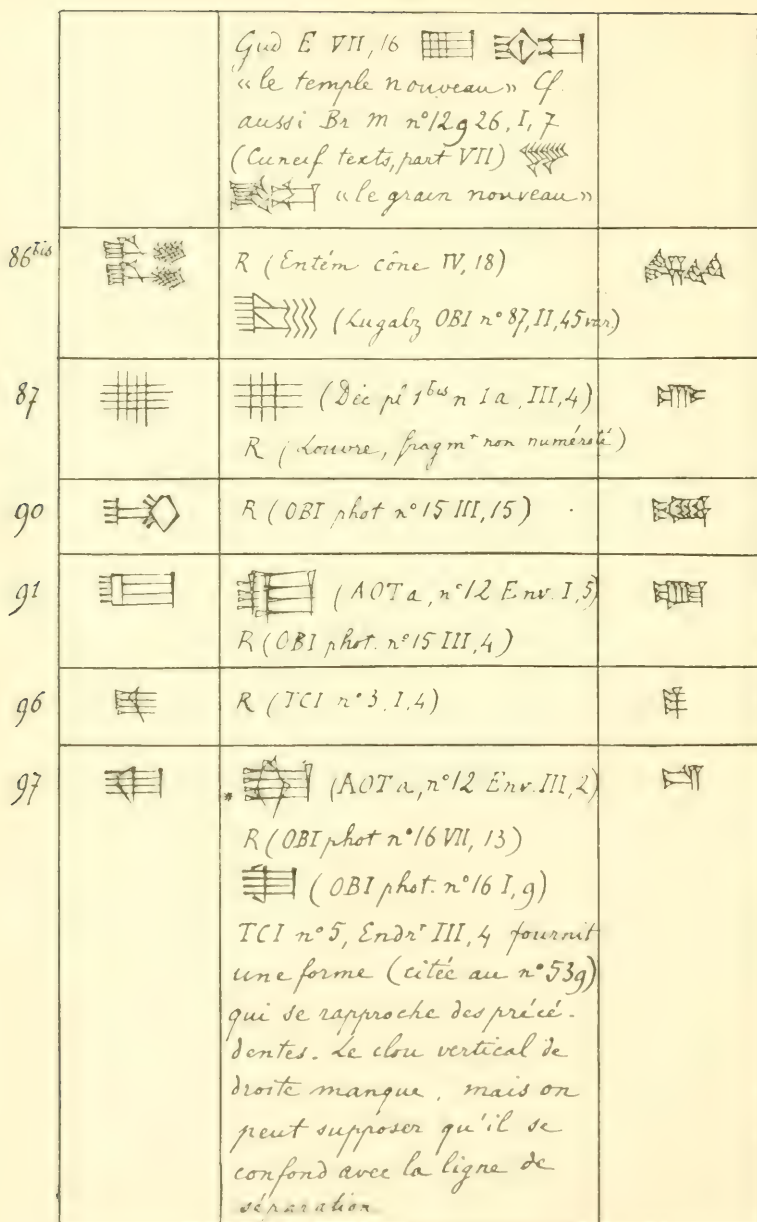 Gud E VII, 16
«le temple nouveau» Cf.
aussi Br M n° 12926, I, 7
(Cuneif texts, part VII)
«le grain nouveau»
86 bis
R (Entém cône IV, 18)
(Lugalz OBI n° 87, II, 45 var.)
87
(Déc pl 1 bis n 1a, III, 4)
R (Louvre, fragmt non numéroté)
90
R (OBI phot n° 15 III, 15)
91
(AOTa, n° 12 Env. I, 5)
R (OBI phot. n° 15 III, 4)
96
R (TCI n° 3, I, 4)
97
(AOTa, n° 12 Env. III, 2)
R (OBI phot n° 16 VII, 13)
(OBI phot. n° 16 I, 9)
TCI n° 5, Endrt III, 4 fournit
une forme (citée au n° 539)
qui se rapproche des précé-
dentes. Le clou vertical de
droite manque, mais on
peut supposer qu'il se
confond avec la ligne de
séparation